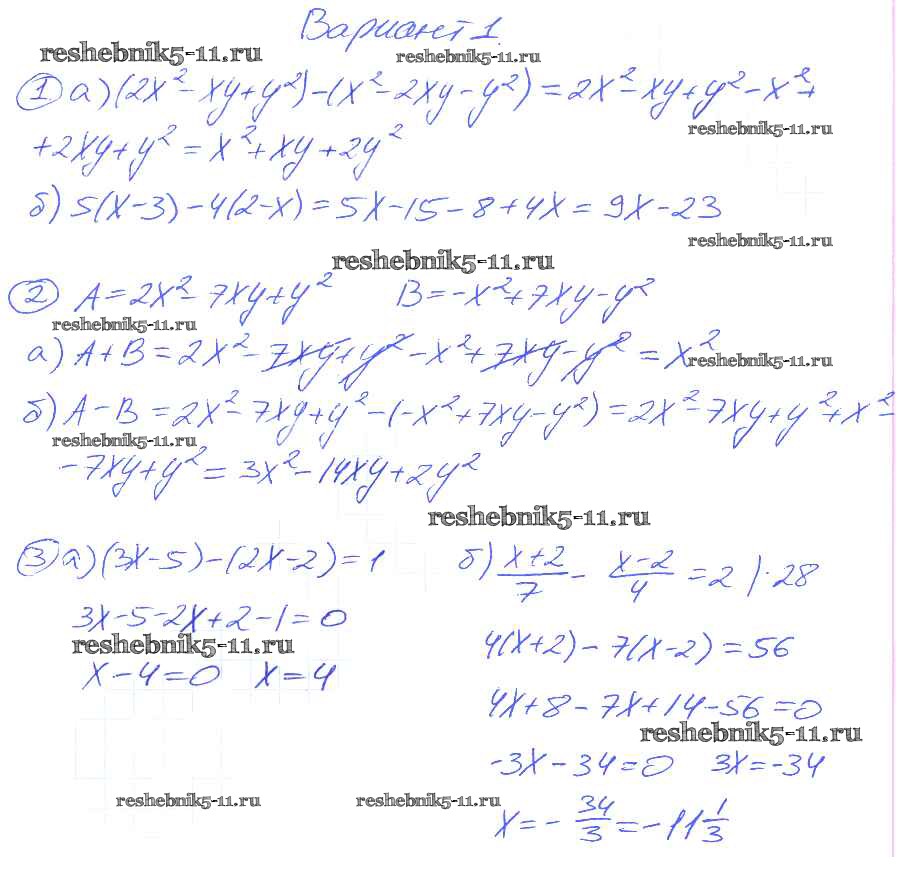 Вариант 1.
reshebnik5-11.ru reshebnik5-11.ru
① а) (2x² - xy + y²) - (x² - 2xy - y²) = 2x² - xy + y² - x² +
reshebnik5-11.ru
+ 2xy + y² = x² + xy + 2y²
б) 5(x - 3) - 4(2 - x) = 5x - 15 - 8 + 4x = 9x - 23
reshebnik5-11.ru
reshebnik5-11.ru
② A = 2x² - 7xy + y² B = -x² + 7xy - y²
reshebnik5-11.ru
а) A + B = 2x² - 7xy + y² - x² + 7xy - y² = x²
reshebnik5-11.ru
б) A - B = 2x² - 7xy + y² - (-x² + 7xy - y²) = 2x² - 7xy + y² + x² -
reshebnik5-11.ru
- 7xy + y² = 3x² - 14xy + 2y²
reshebnik5-11.ru
③ а) (3x - 5) - (2x - 2) = 1
3x - 5 - 2x + 2 - 1 = 0
reshebnik5-11.ru
x - 4 = 0 x = 4
б) (x + 2)/7 - (x - 2)/4 = 2 | · 28
4(x + 2) - 7(x - 2) = 56
4x + 8 - 7x + 14 - 56 = 0
reshebnik5-11.ru
-3x - 34 = 0 3x = -34
x = - 34/3 = -11 1/3
reshebnik5-11.ru reshebnik5-11.ru